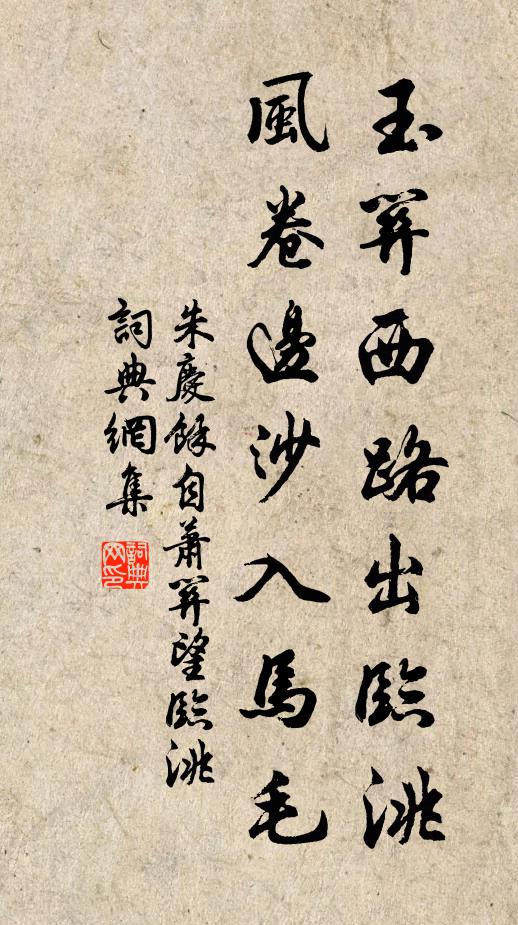 玉関西路出臨洮
風卷邊沙入馬毛
朱慶餘自蕭関望臨洮
詞典網集
詞典網印